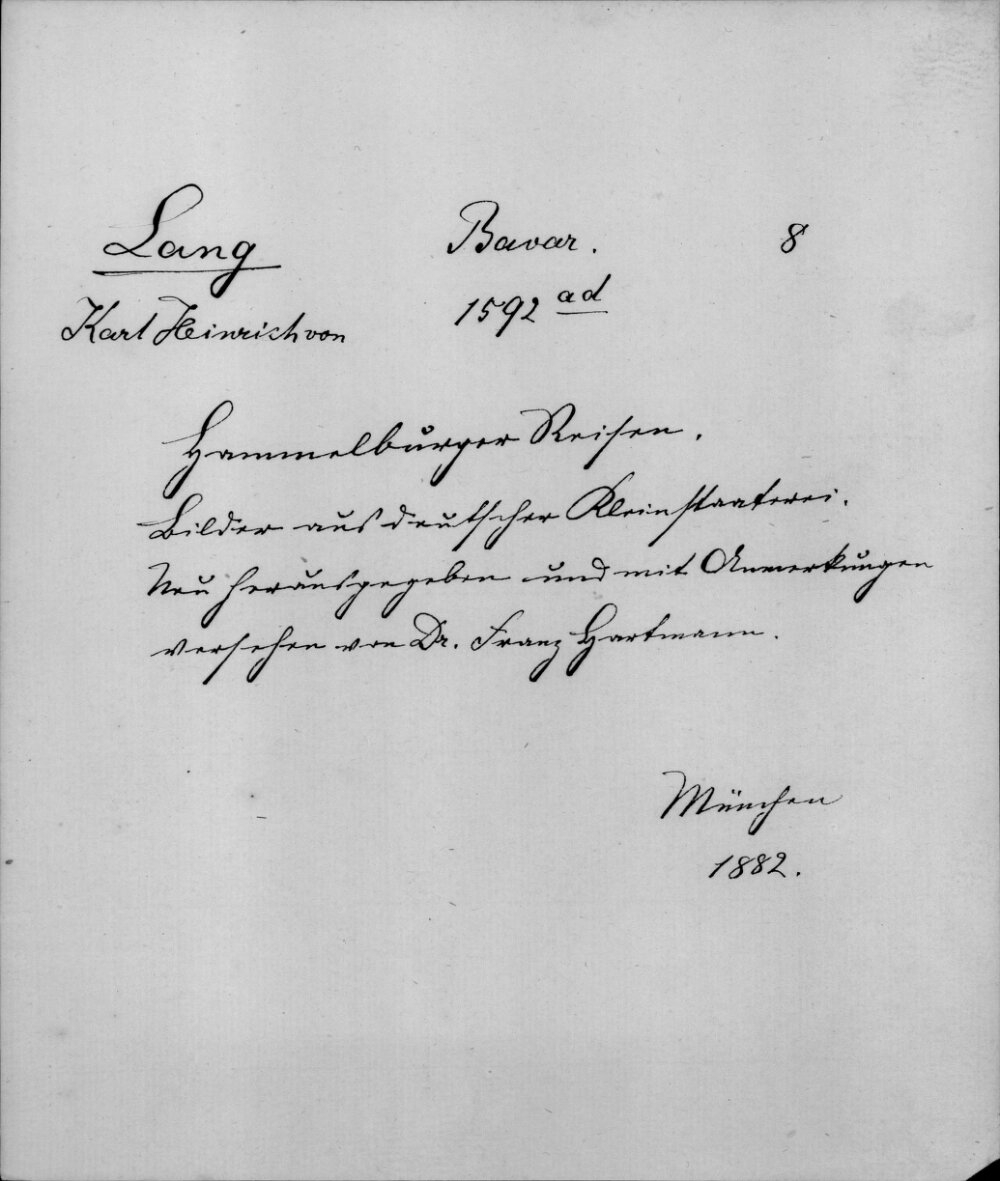 Lang Bavar. 8
Karl Heinrich von 1592 ad
Hammelburger Reisen.
Bilder aus deutscher Kleinstaaterei.
Neu herausgegeben und mit Anmerkungen
versehen von Dr. Franz Hartmann.
München
1882.